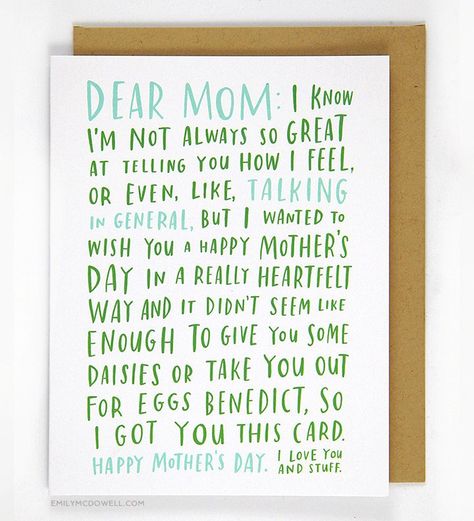 DEAR MOM: I KNOW
I'M NOT ALWAYS SO GREAT
AT TELLING YOU HOW I FEEL,
OR EVEN, LIKE, TALKING
IN GENERAL, BUT I WANTED TO
WISH YOU A HAPPY MOTHER'S
DAY IN A REALLY HEARTFELT
WAY AND IT DIDN'T SEEM LIKE
ENOUGH TO GIVE YOU SOME
DAISIES OR TAKE YOU OUT
FOR EGGS BENEDICT, SO
I GOT YOU THIS CARD.
HAPPY MOTHER'S DAY. I LOVE YOU
AND STUFF.
EMILYMCDOWELL.COM